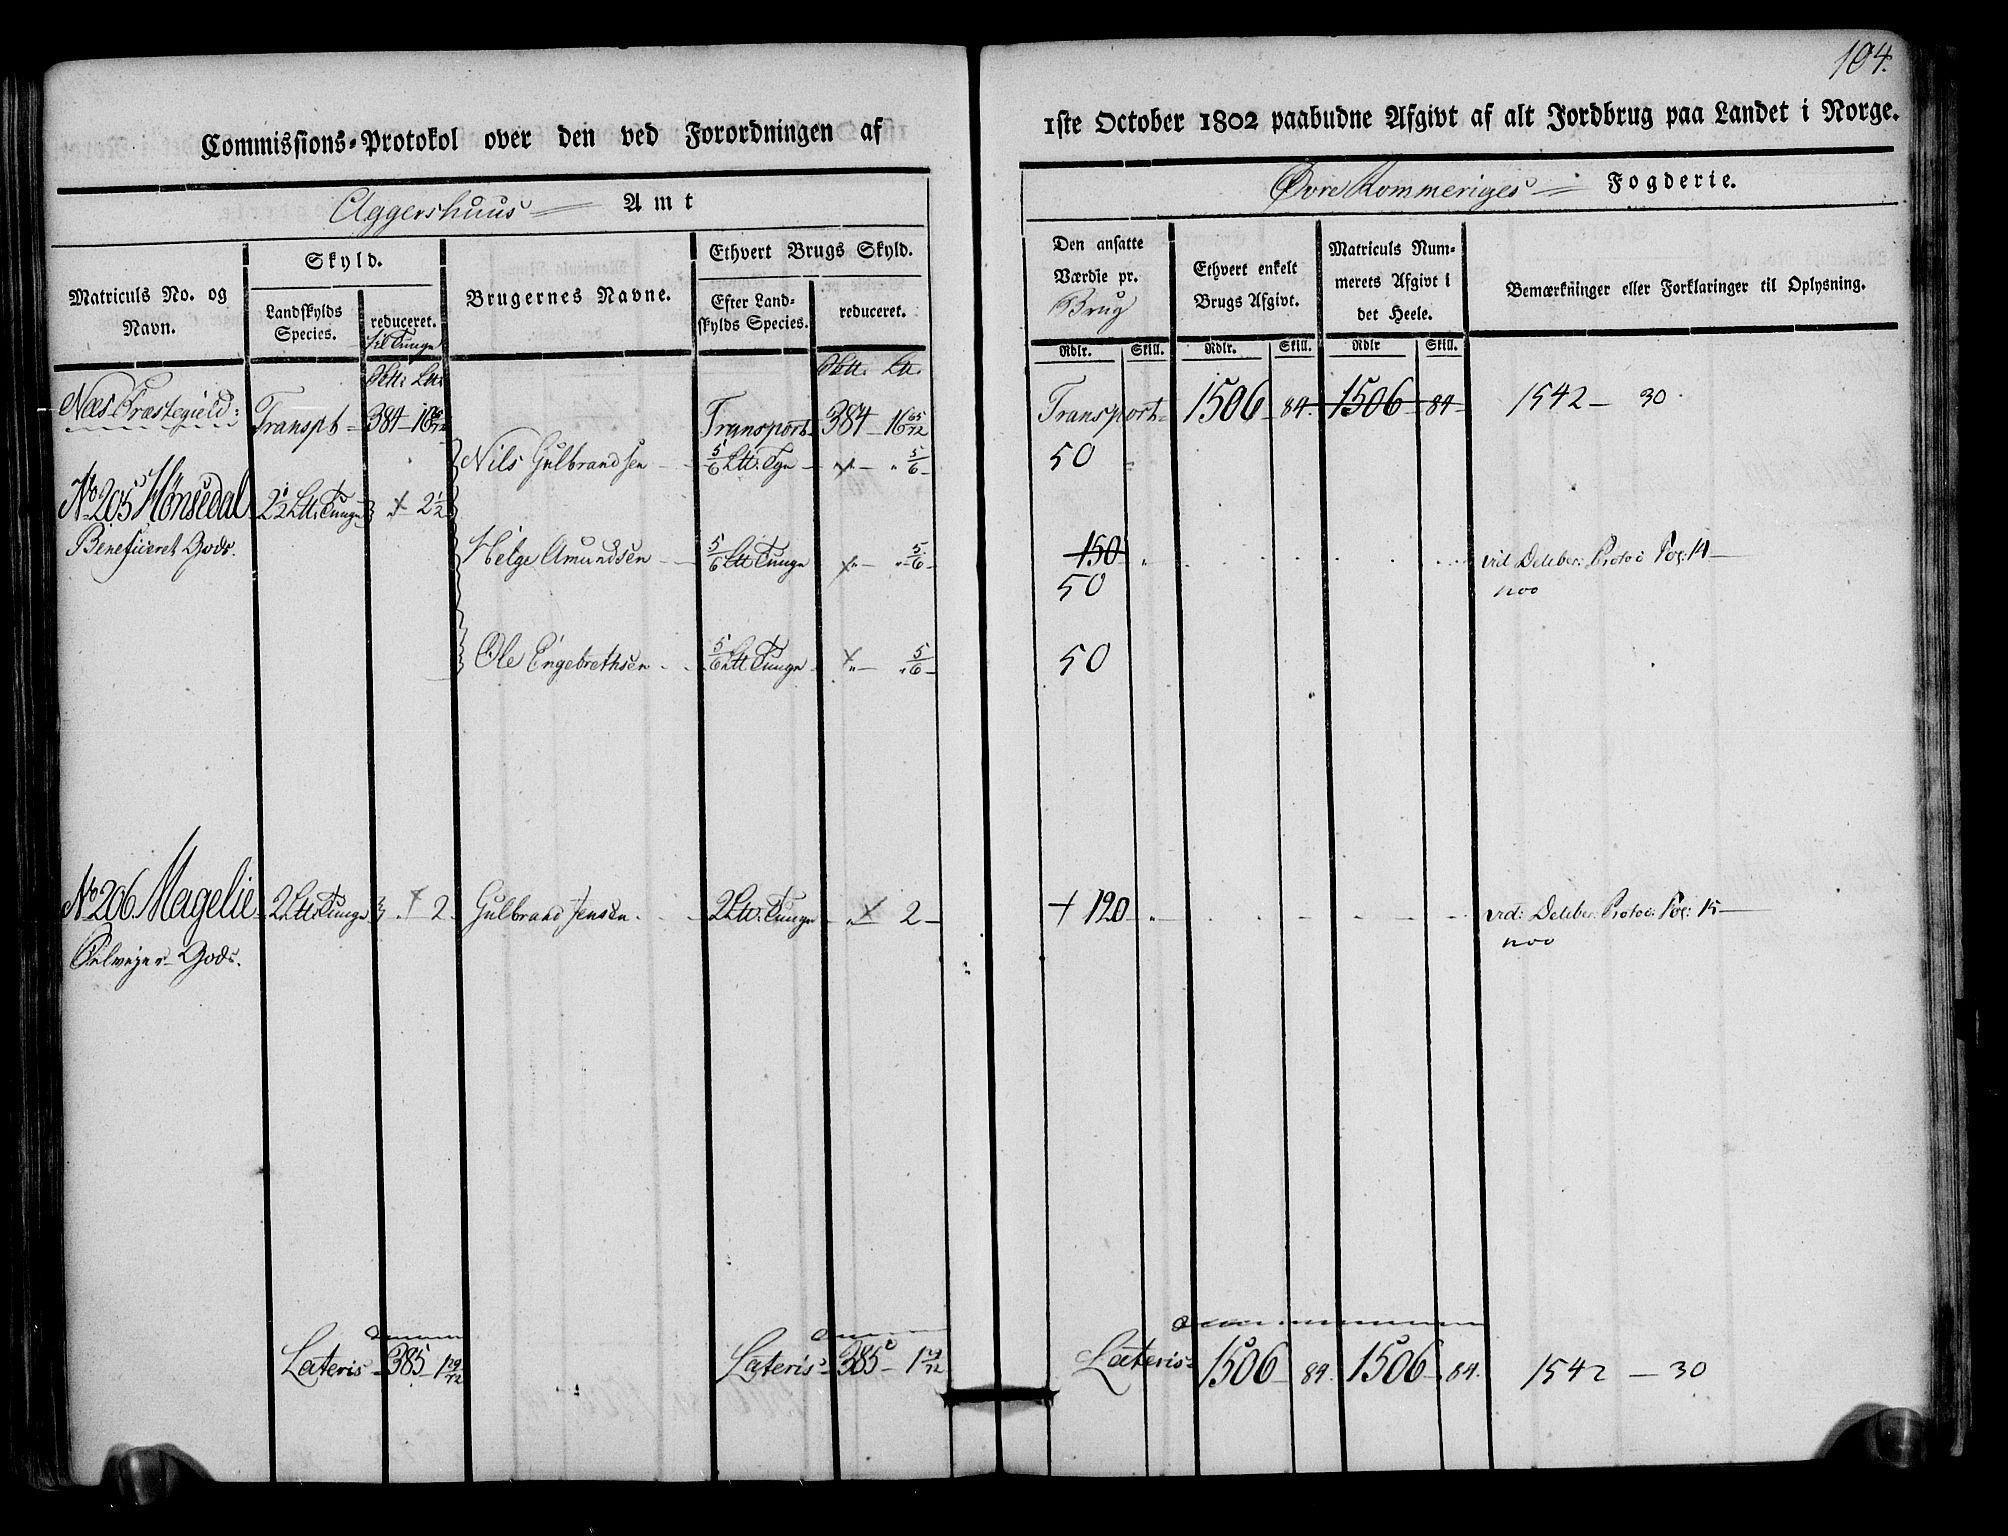 104.
Commissions-Protokol over den ved Forordningen af
1ste October 1802 paabudne Afgivt af alt Jordbrug paa Landet i Norge.
Aggershuus Amt
Øvre Rommeriges Fogderie.
Matriculs No. og Navn.
Skyld.
Landskylds Species.
reduceret. til Tunge
Brugernes Navne.
Ethvert Brugs Skyld.
Efter Landskylds Species.
reduceret.
Den ansatte Værdie pr. Brug
Ethvert enkelt Brugs Afgivt.
Matriculs Nummerets Afgivt i det Heele.
Bemærkninger eller Forklaringer til Oplysning.
Rdlr. Skill. Rdlr. Skill. Rdlr Skill.
Næs Præstegield: Transpt 384 - 16 65/72 Transport 384 - 16 65/72 Transport 1506 - 84. 1506 - 84 1542 - 30.
Nils Gulbrandsen 5/6 Ltt: Tgn 5/6 50
No 205 Hønsedal 2 1/2 Ltt: Tunge 2 1/2
Beneficeret Gods.
Helge Amundsen 5/6 Ltt Tunge 5/6 150 vid Deliber: Protoc Pag: 14
50
Ole Engebrethsen 5/6 Ltt Tunge 5/6 50
No 206 Magelie 2 Ltt: Tunge 2 Gulbrand Jensen 2 Ltt: Tunge 2 + 120 vid: Deliber: Protoc: Pag: 15
Selvejer Gods.
Lateris 385 - 1 29/72 Lateris 385 - 1 29/72 Lateris 1506 - 84. 1506 - 84. 1542 - 30